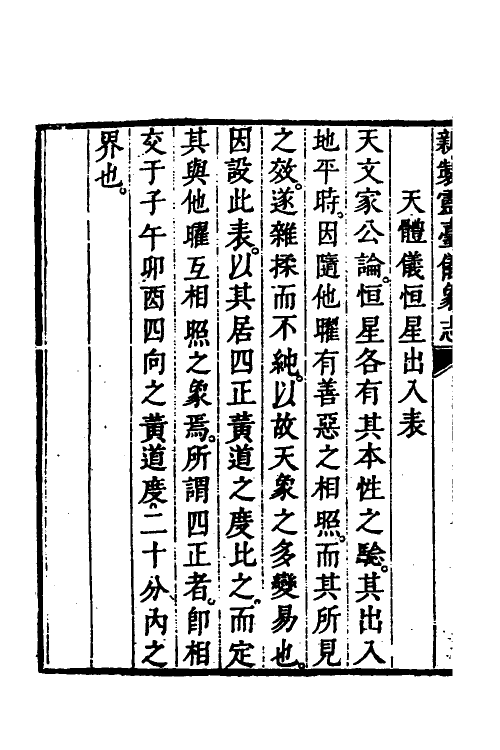 新製靈臺儀象志
天體儀恒星出入表
天文家公論。恒星各有其本性之騐。其出入
地平時。因隨他曜有善惡之相照。而其所見
之效。遂雜揉而不純。以故天象之多變易也。
因設此表。以其居四正黃道之度比之。而定
其與他曜互相照之象焉。所謂四正者。卽相
交于子午卯酉四向之黃道度。二十分內之
界也。